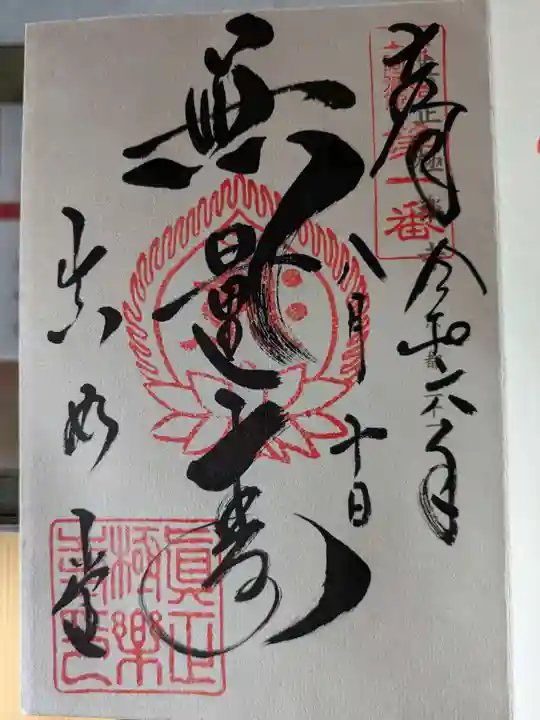 奉拝
令和六年
八月十日
無量寿
真如堂
第一番
眞正極樂